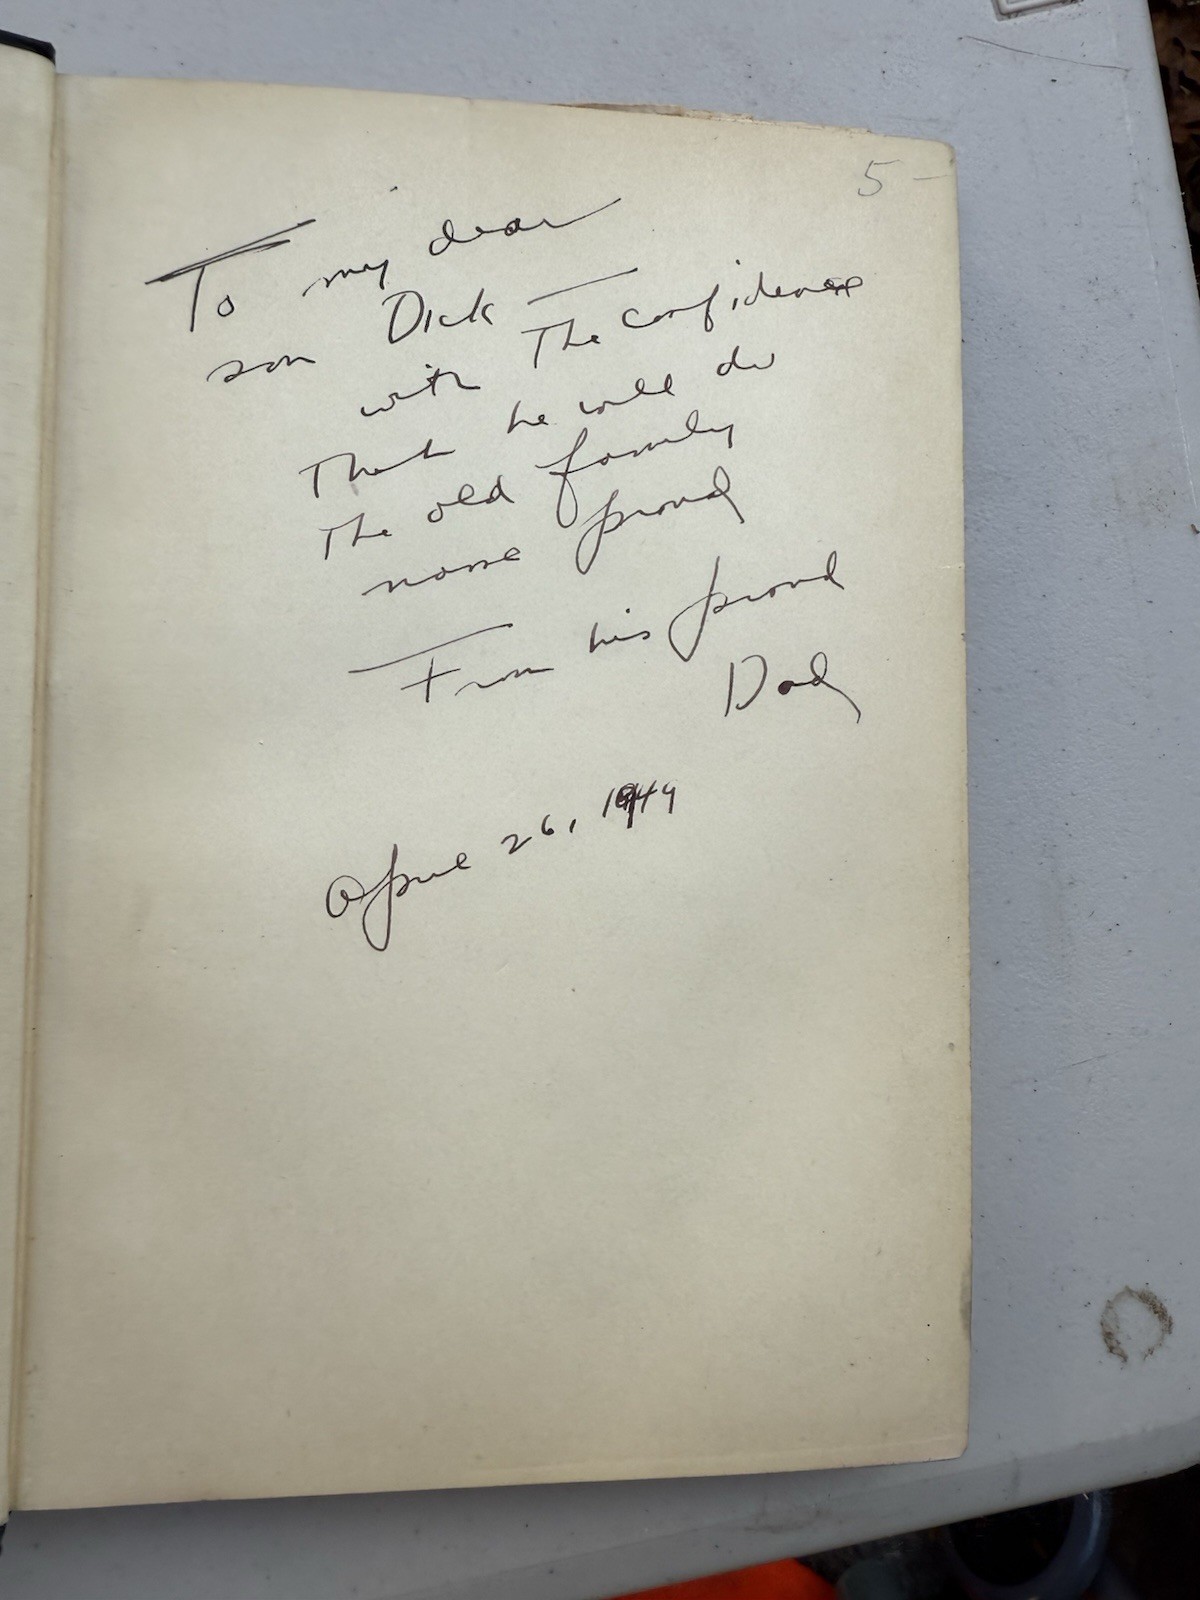 5-
To my dear
son Dick —
with The confidence
That he will do
The old family
name proud
From his proud
Dad
April 26, 1949